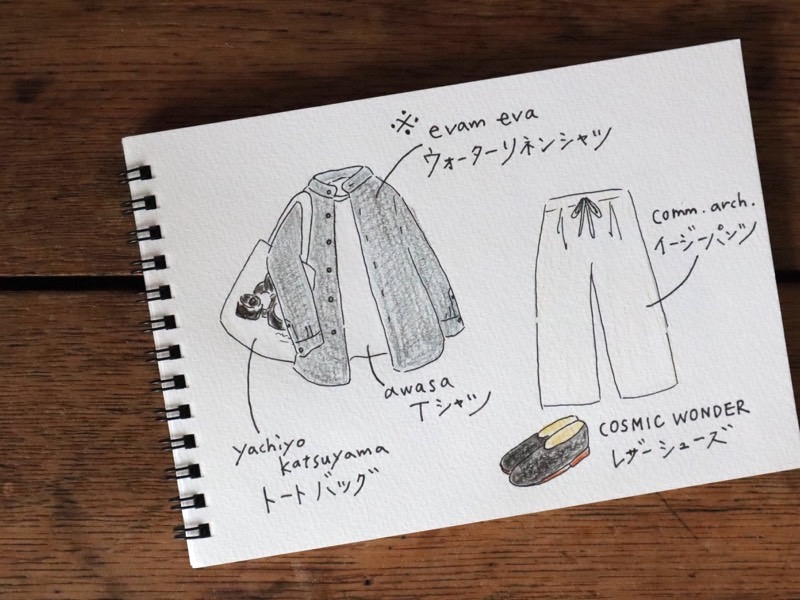 ※ evam eva
ウォーターリネンシャツ
comm. arch.
イージーパンツ
awasa
Tシャツ
yachiyo
katsuyama
トートバッグ
COSMIC WONDER
レザーシューズ